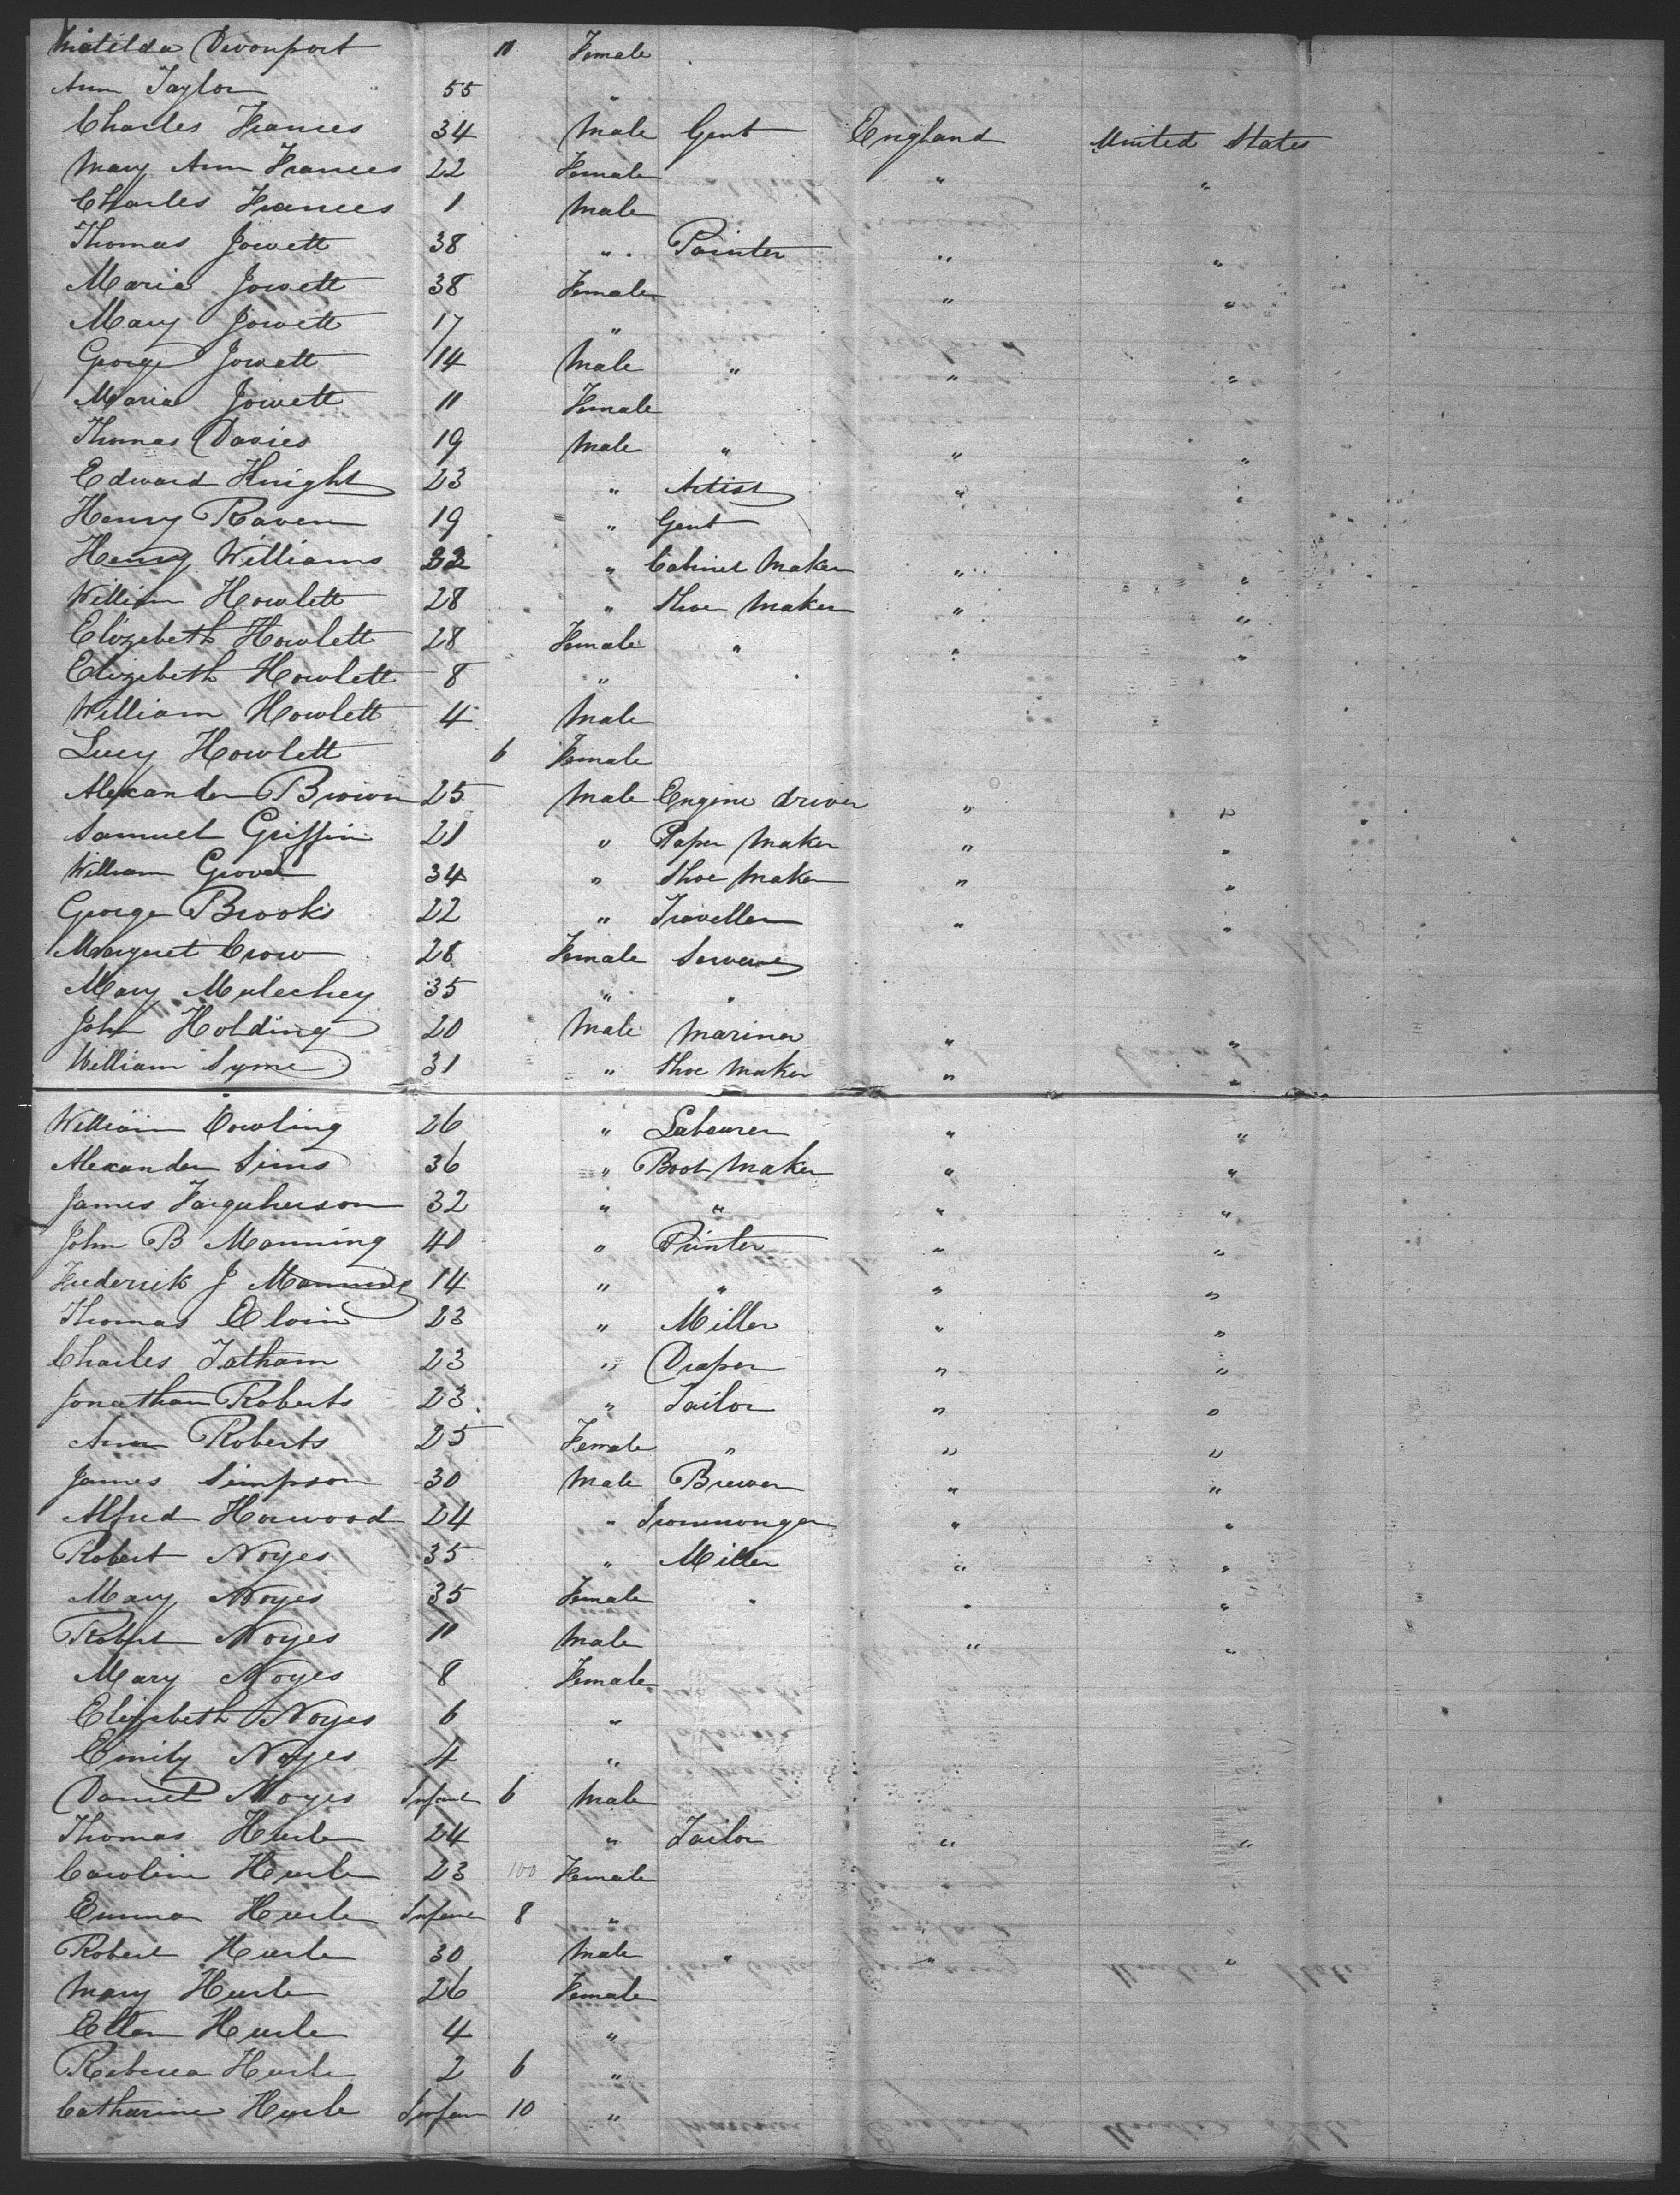 Matilda Devonport 11 Female
Ann Taylor 55 "
Charles Frances 34 Male Gent England United States
Mary Ann Frances 22 Female " "
Charles Frances 1 Male
Thomas Jowett 38 " Painter " "
Maria Jowett 38 Female " "
Mary Jowett 17 "
George Jowett 14 Male " " "
Maria Jowett 11 Female
Thomas Davies 19 Male " " "
Edward Knight 23 " Artist " "
Henry Raven 19 " Gent
Henry Williams 32 " Cabinet Maker " "
William Howlett 28 " Shoe Maker " "
Elizebeth Howlett 28 Female " " "
Elizebeth Howlett 8 "
William Howlett 4 Male
Lucy Howlett 6 Female
Alexander Brown 25 Male Engine driver " "
Samuel Griffin 21 " Paper Maker " "
William Grover 34 " Shoe Maker " "
George Brooks 22 " Traveller " "
Margret Crow 28 Female
Mary Mulechey 35 " "
John Holding 20 Male Mariner " "
William Syme 31 " Shoe Maker " "
William Cowling 26 " Labourer " "
Alexander Sims 36 " Boot Maker " "
James Farquherson 32 " " " "
John B Manning 40 " Painter " "
Frederick J Manning 14 " " " "
Thomas Elvin 23 " Miller " "
Charles Tatham 23 " Draper " "
Jonathan Roberts 23 " Tailor " "
Ann Roberts 25 Female " " "
James Simpson 30 Male Brewer " "
Alfred Horwood 24 " Ironmonger " "
Robert Noyes 35 " Miller " "
Mary Noyes 35 Female " " "
Robert Noyes 11 Male " "
Mary Noyes 8 Female
Elizebeth Noyes 6 "
Emily Noyes 4 "
Daniel Noyes Infant 6 Male
Thomas Hurle 24 " Tailor " "
Caroline Hurle 23 100 Female
Emma Hurle Infant 8 "
Robert Hurle 30 Male " " "
Mary Hurle 26 Female
Ellen Hurle 4 "
Rebecca Hurle 2 6 "
Catharine Hurle Infan 10 "